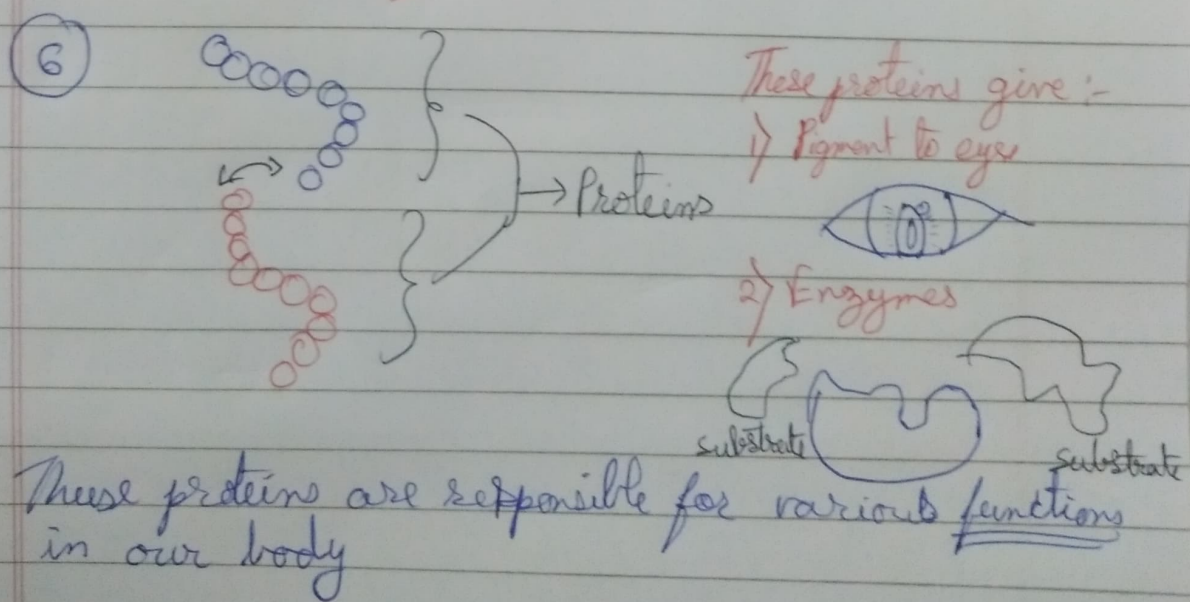 6
These proteins give :-
1) Pigment to eye
Proteins
2) Enzymes
substrate
substrate
These proteins are responsible for various functions
in our body